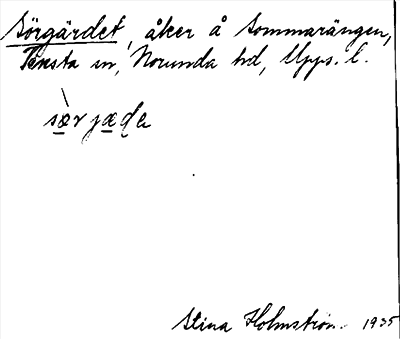 Sörgärdet, åker å Sommarängen,
Tensta sn, Norunda hd, Upps. l.
sœ̀rjœde
Stina Holmström. 1935